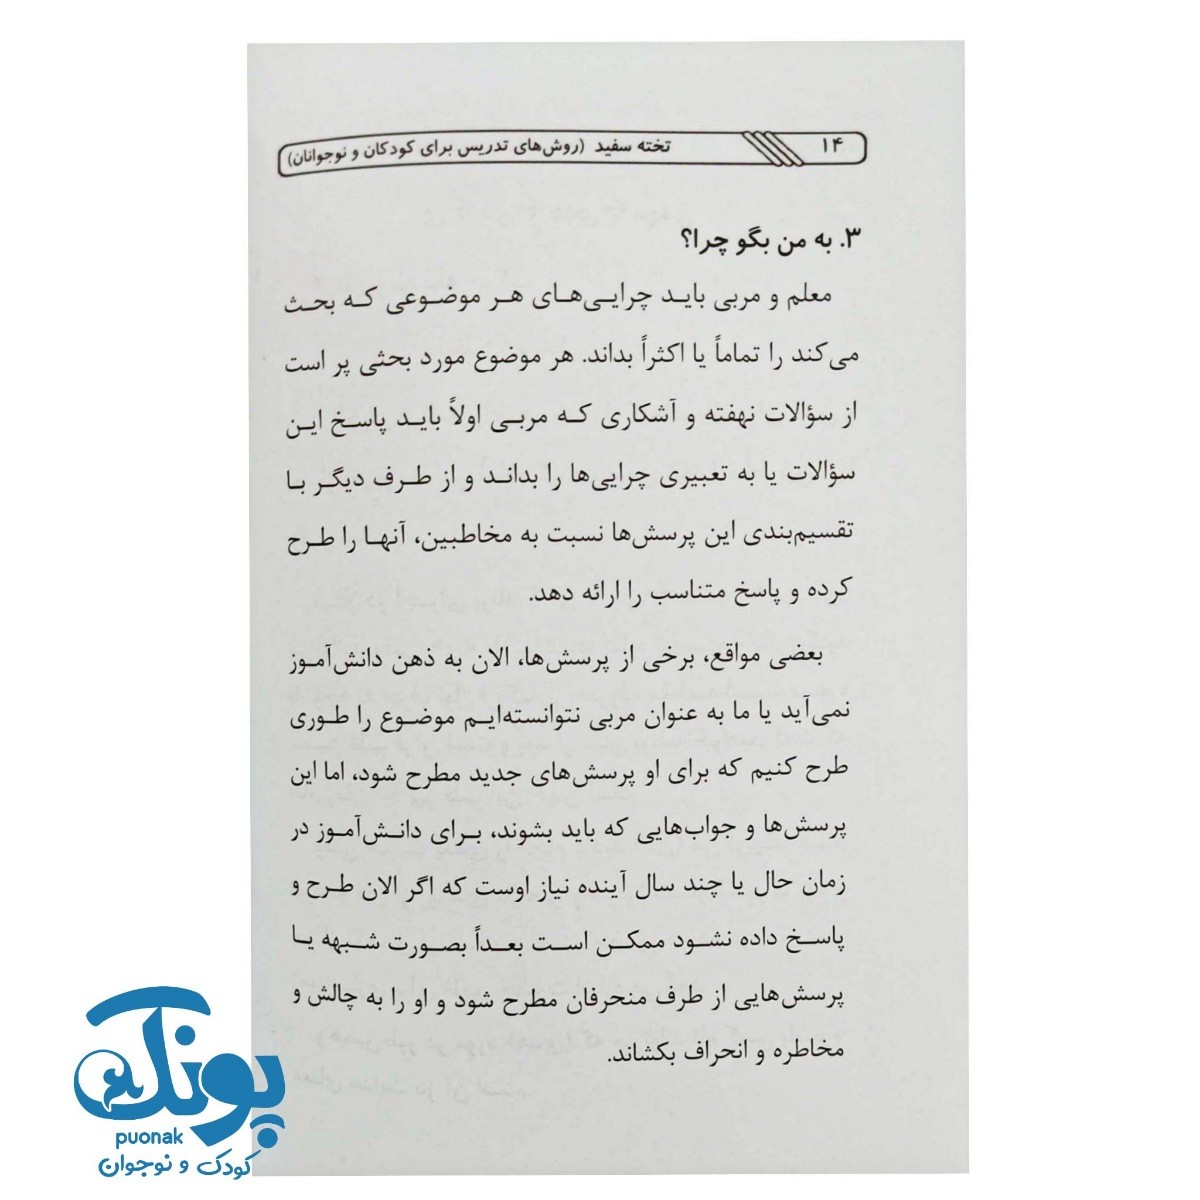 ۱۴ تخته سفید (روش‌های تدریس برای کودکان و نوجوانان)
۳. به من بگو چرا؟
معلم و مربی باید چرایی‌های هر موضوعی که بحث
می‌کند را تماماً یا اکثراً بداند. هر موضوع مورد بحثی پر است
از سؤالات نهفته و آشکاری که مربی اولاً باید پاسخ این
سؤالات یا به تعبیری چرایی‌ها را بداند و از طرف دیگر با
تقسیم‌بندی این پرسش‌ها نسبت به مخاطبین، آنها را طرح
کرده و پاسخ متناسب را ارائه دهد.
بعضی مواقع، برخی از پرسش‌ها، الان به ذهن دانش‌آموز
نمی‌آید یا ما به عنوان مربی نتوانسته‌ایم موضوع را طوری
طرح کنیم که برای او پرسش‌های جدید مطرح شود، اما این
پرسش‌ها و جواب‌هایی که باید بشوند، برای دانش‌آموز در
زمان حال یا چند سال آینده نیاز اوست که اگر الان طرح و
پاسخ داده نشود ممکن است بعداً بصورت شبهه یا
پرسش‌هایی از طرف منحرفان مطرح شود و او را به چالش و
مخاطره و انحراف بکشاند.
پونک
puonak
کودک و نوجوان